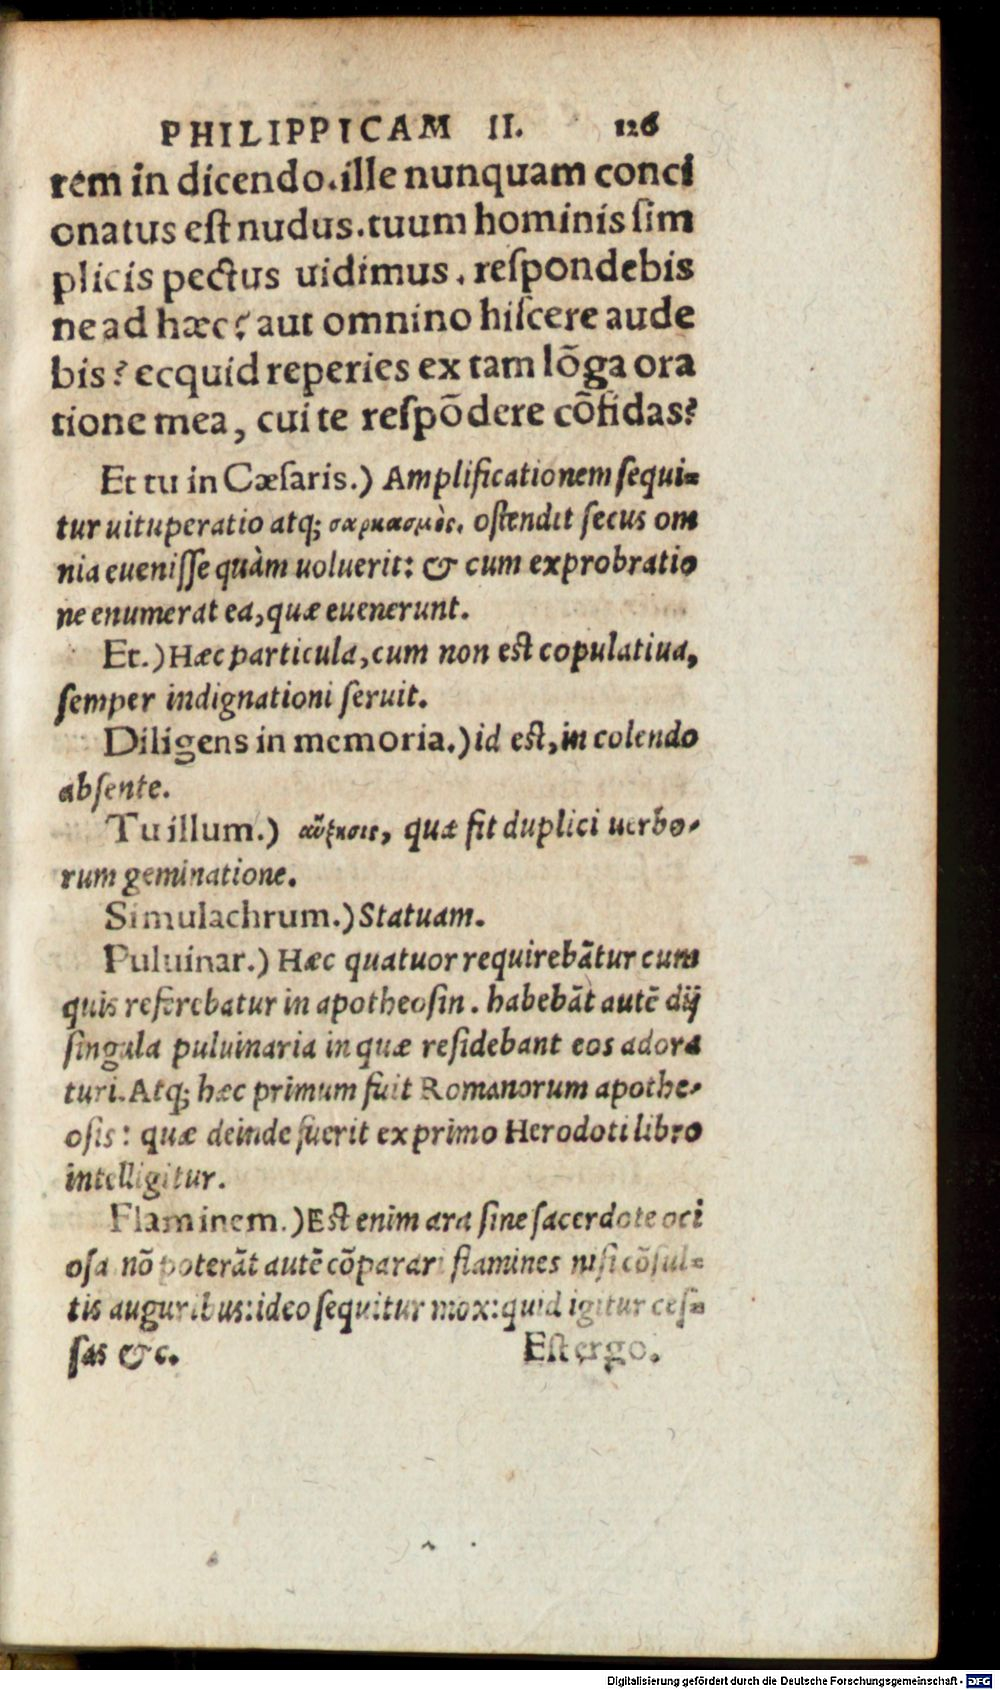 PHILIPPICAM II. 126
rem in dicendo.ille nunquam conci
onatus eſt nudus.tuum hominis ſim
plicis pectus uidimus. reſpondebis
ne ad hæc? aut omnino hiſcere aude
bis? ecquid reperies ex tam lõga ora
tione mea, cui te reſpõdere cõfidas?
Et tu in Cæſaris.) Amplificationem ſequi-
tur uituperatio atq; σαρκασμὸς. oſtendit ſecus om
nia eueniſſe quàm uoluerit: & cum exprobratio
ne enumerat ea, quæ euenerunt.
Et.) Hæc particula, cum non eſt copulatiua,
ſemper indignationi ſeruit.
Diligens in memoria.) id eſt, in colendo
abſente.
Tu illum.) αὔξησις, quæ fit duplici uerbo-
rum geminatione.
Simulachrum.) Statuam.
Puluinar.) Hæc quatuor requirebãtur cum
quis referebatur in apotheoſin. habebãt autẽ dij
ſingula puluinaria in quæ reſidebant eos adora
turi. Atq; hæc primum fuit Romanorum apothe-
oſis: quæ deinde fuerit ex primo Herodoti libro
intelligitur.
Flaminem.) Eſt enim ara ſine ſacerdote oci
oſa nõ poterãt autẽ cõparari flamines niſi cõſul-
tis auguribus: ideo ſequitur mox: quid igitur ceſ-
ſas &c. Eſt ergo.
Digitalisierung gefördert durch die Deutsche Forschungsgemeinschaft - DFG